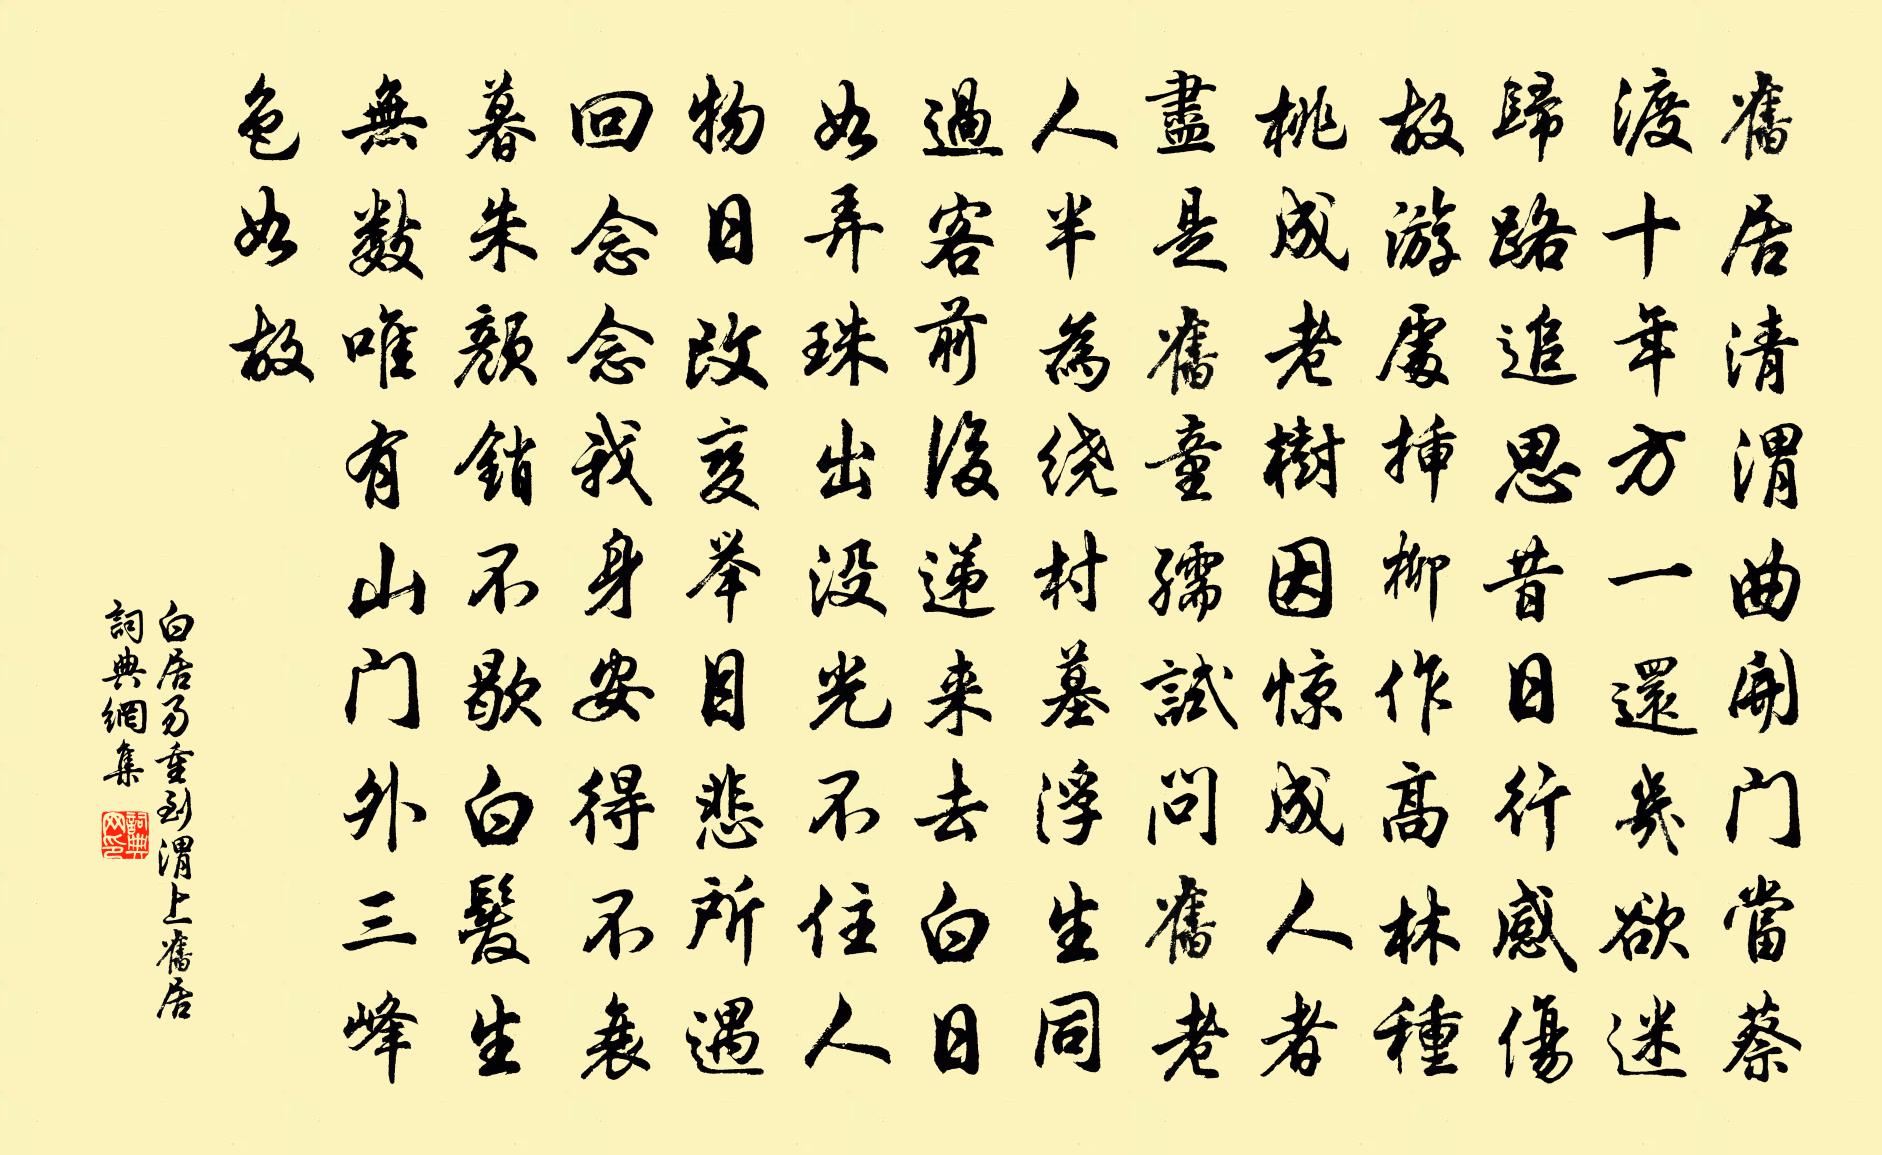 舊居清渭曲開門當蔡
渡十年方一還幾欲迷
歸路追思昔日行感傷
故游處插柳作高林種
桃成老樹因惊成人者
盡是舊童孺試問舊老
人半為绕村墓浮生同
過客前後递来去白日
如弄珠出没光不住人
物日改变举目悲所遇
回念念我身安得不衰
暮朱颜銷不歇白髪生
無數唯有山门外三峰
色如故
白居易重到渭上舊居
詞典網集
詞典網印